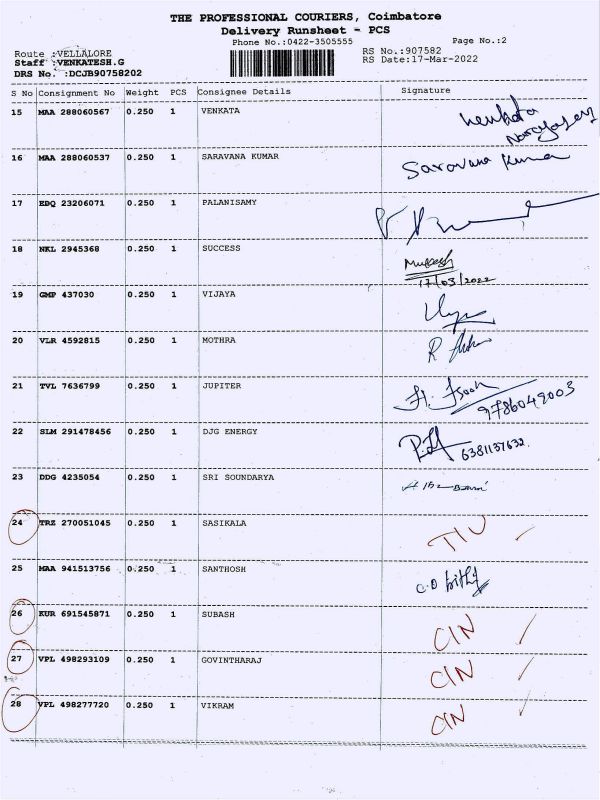 THE PROFESSIONAL COURIERS, Coimbatore
Delivery Runsheet - PCS
Phone No.:0422-3505555 Page No.:2
Route :VELLALORE RS No.:907582
Staff :VENKATESH.G RS Date:17-Mar-2022
DRS No. :DCJB90758202
S No Consignment No Weight PCS Consignee Details Signature
15 MAA 288060567 0.250 1 VENKATA Venkata
Narayanan
16 MAA 288060537 0.250 1 SARAVANA KUMAR Saravana Kumar
17 EDQ 23206071 0.250 1 PALANISAMY
18 NKL 2945368 0.250 1 SUCCESS Mukesh
17/03/2022
19 GMP 437030 0.250 1 VIJAYA
20 VLR 4592815 0.250 1 MOTHRA R
21 TVL 7636799 0.250 1 JUPITER
9786049003
22 SLM 291478456 0.250 1 DJG ENERGY 6381137632
23 DDG 4235054 0.250 1 SRI SOUNDARYA
24 TRZ 270051045 0.250 1 SASIKALA
25 MAA 941513756 0.250 1 SANTHOSH
26 KUR 691545871 0.250 1 SUBASH CIN
27 VPL 498293109 0.250 1 GOVINTHARAJ CIN
28 VPL 498277720 0.250 1 VIKRAM CIN